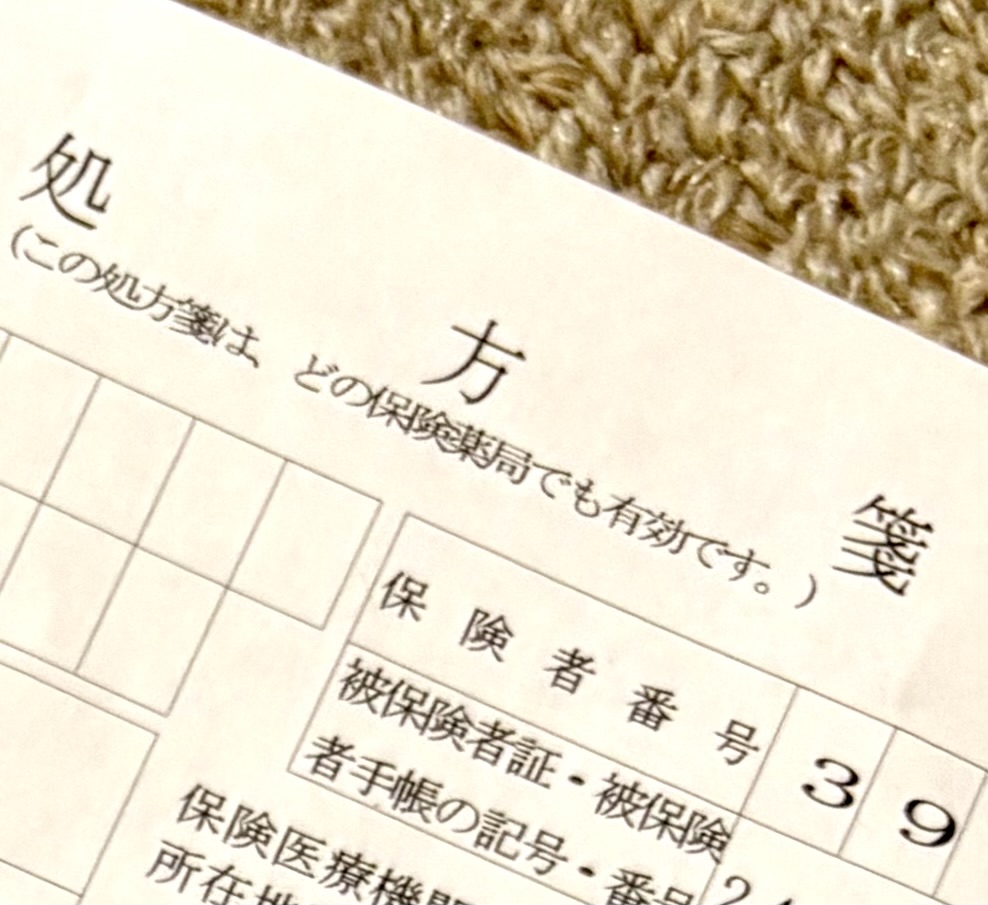 処方箋
(この処方箋は、どの保険薬局でも有効です。)
保険者番号 39
被保険者証・被保険
者手帳の記号・番号 2
保険医療機関
所在地